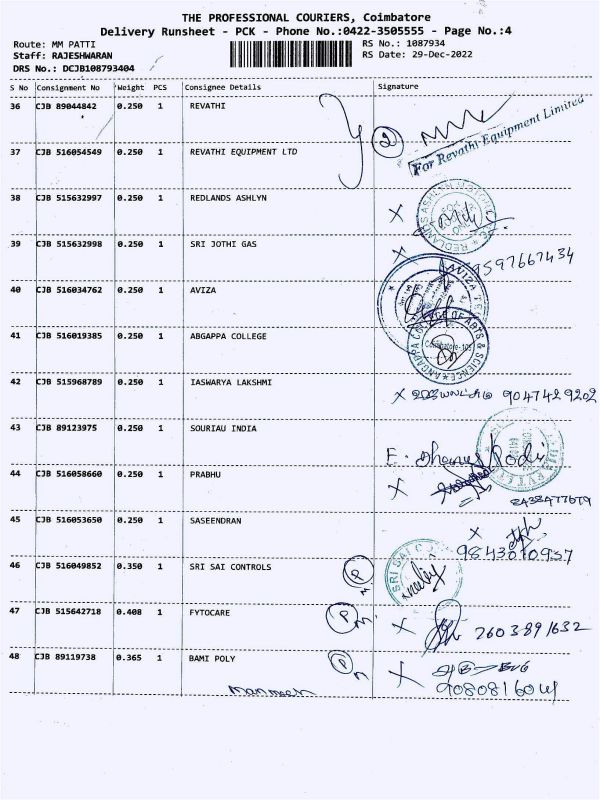 THE PROFESSIONAL COURIERS, Coimbatore
Delivery Runsheet - PCK - Phone No.:0422-3505555 - Page No.:4
Route: MM PATTI
RS No.: 1087934
Staff: RAJESHWARAN
RS Date: 29-Dec-2022
DRS No.: DCJB108793404
S No Consignment No Weight PCS Consignee Details Signature
36 CJB 89044842 0.250 1 REVATHI
2
For Revathi Equipment Limited
37 CJB 516054549 0.250 1 REVATHI EQUIPMENT LTD
38 CJB 515632997 0.250 1 REDLANDS ASHLYN
X
REDLANDS ASHLYN MOTORS
39 CJB 515632998 0.250 1 SRI JOTHI GAS
X 9597667434
40 CJB 516034762 0.250 1 AVIZA
AVIZA
41 CJB 516019385 0.250 1 ABGAPPA COLLEGE
ANGAPPA COLLEGE OF ARTS & SCIENCE
Coimbatore
42 CJB 515968789 0.250 1 IASWARYA LAKSHMI
X 9047429202
43 CJB 89123975 0.250 1 SOURIAU INDIA
E. Dhanus Kodi
44 CJB 516058660 0.250 1 PRABHU
X
45 CJB 516053650 0.250 1 SASEENDRAN
X
9843010937
46 CJB 516049852 0.350 1 SRI SAI CONTROLS
P
SRI SAI
47 CJB 515642718 0.408 1 FYTOCARE
P M. X 2603891632
48 CJB 89119738 0.365 1 BAMI POLY
P X